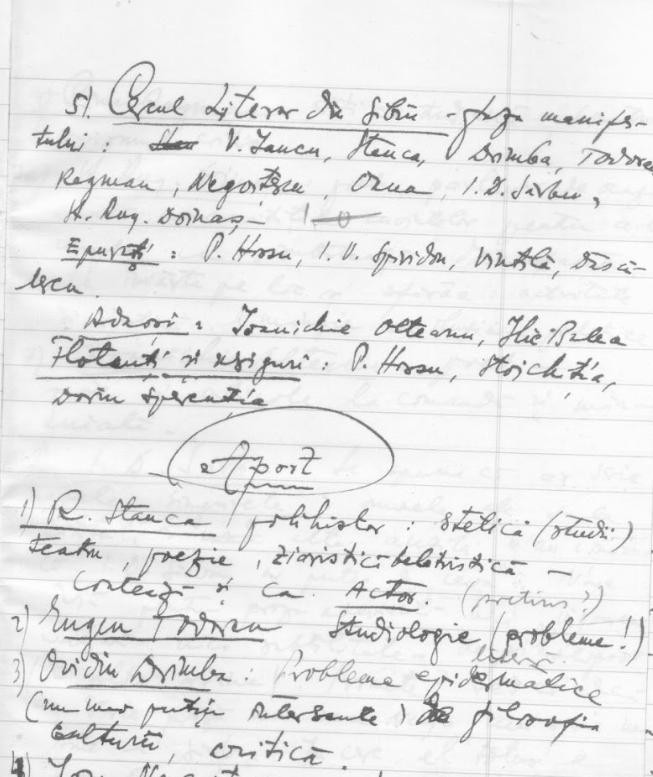 5). Cercul Literar din Sibiu - faza manifes-
tului : V. Iancu, Stanca, Drimba, Todoran
Regman, Negoițescu Oana, I.D. Sârbu,
Șt. Aug. Doinaș - 10
Epurați : P. Hossu, I. V. Spiridon, Vintilă, Dăscă-
lescu.
Aderori : Ioanichie Olteanu, Ilie Balea
Flotanți și nesiguri : P. Hossu, Stoichiția,
Dorin Speranția
Aport
1) R. Stanca polihistor : stelică (studii)
teatru, poezie, ziaristică beletristică -
Contează și ca Actor. (pretins?)
2) Eugen Todoran Studiologie (probleme!)
3) Ovidiu Drimba : Probleme epidermatice
(nu mai puțin interesante) filosofia
culturii, critică.